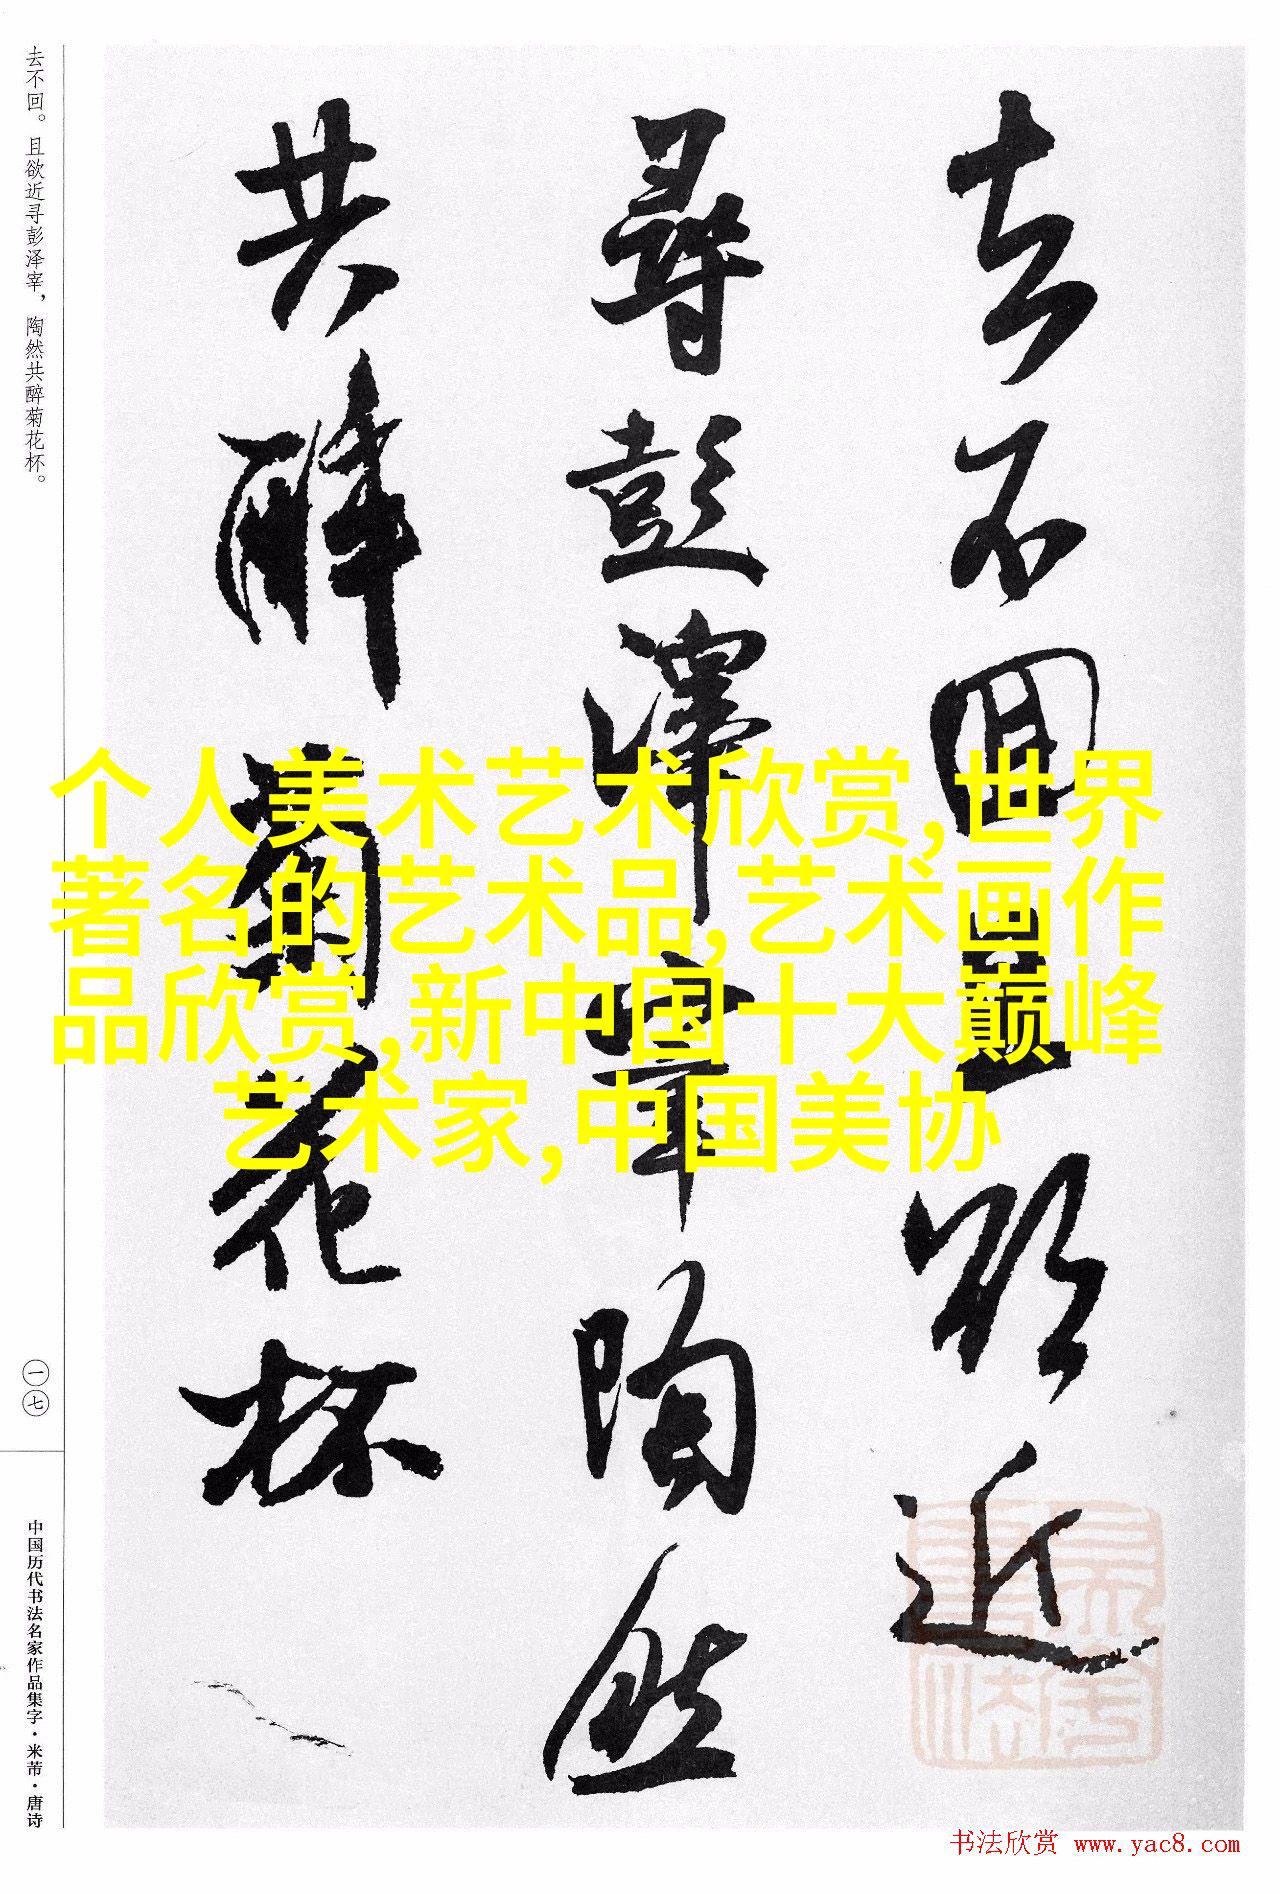 去不回且欲近
尋彭澤宰陶然
共醉菊花杯
去不回。且欲近寻彭泽宰，陶然共醉菊花杯。
一七
中国历代书法名家作品集字·米芾·唐诗
个人美术艺术欣赏,世界
著名的艺术品,艺术画作
品欣赏,新中国十大巅峰
艺术家,中国美协
书法欣赏 www.yac8.com